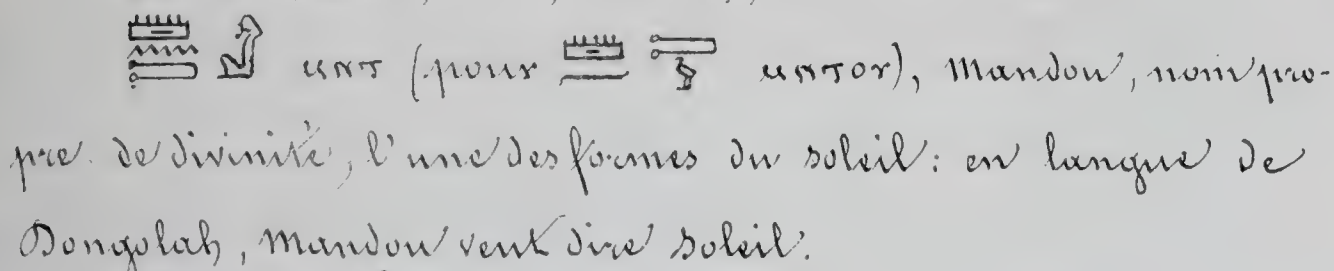 𓏠𓈖𓍿𓀭 ⲙⲛⲧ (pour 𓏠𓈖𓍿𓅱 ⲙⲛⲧⲟⲩ), Mandou, nom pro-
pre de divinité, l'une des formes du soleil : en langue de
Dongolah, Mandou veut dire soleil.